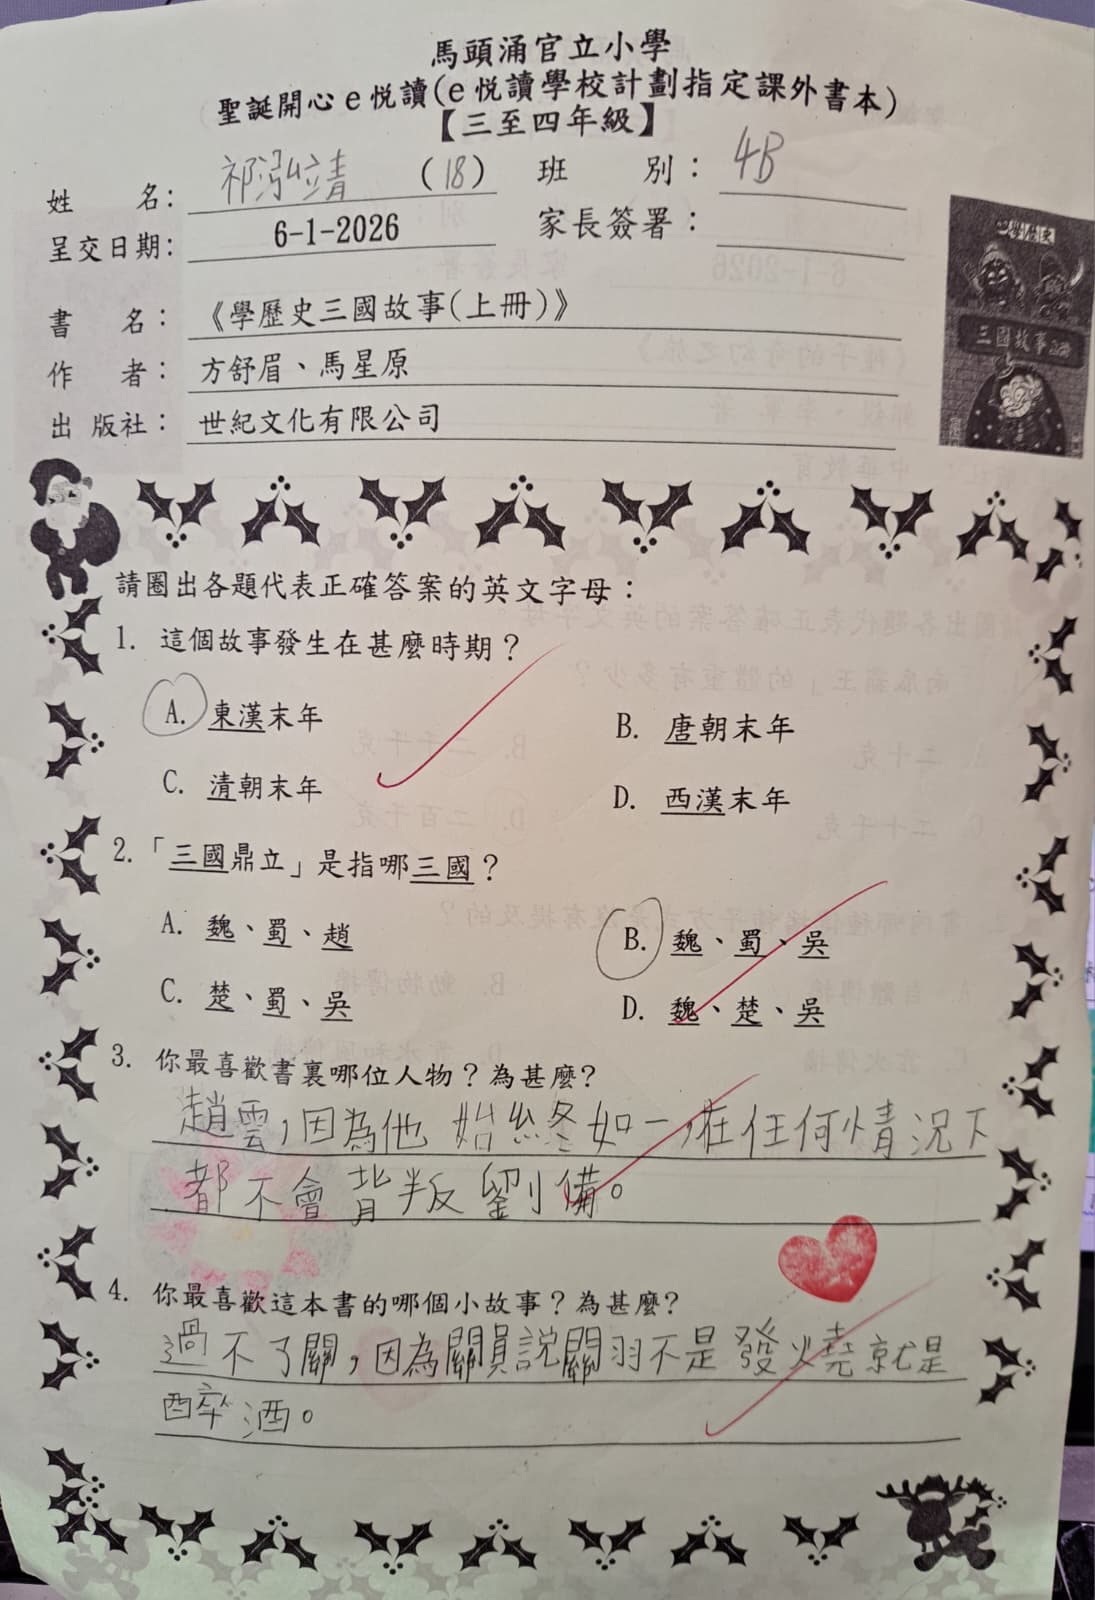 馬頭涌官立小學
聖誕開心e悅讀(e悅讀學校計劃指定課外書本)
【三至四年級】
姓 名： 祁泓竩靖 (18) 班 別： 4B
呈交日期： 6-1-2026 家長簽署：
書 名： 《學歷史三國故事(上冊)》
作 者： 方舒眉、馬星原
出 版社： 世紀文化有限公司
學歷史
三國故事上冊
請圈出各題代表正確答案的英文字母：
1. 這個故事發生在甚麼時期？
A. 東漢末年 B. 唐朝末年
C. 清朝末年 D. 西漢末年
2.「三國鼎立」是指哪三國？
A. 魏、蜀、趙 B. 魏、蜀、吳
C. 楚、蜀、吳 D. 魏、楚、吳
3. 你最喜歡書裏哪位人物？為甚麼？
趙雲，因為他始終如一，在任何情況下
都不會背叛劉備。
4. 你最喜歡這本書的哪個小故事？為甚麼？
過不了關，因為關員說關羽不是發燒就是
醉酒。